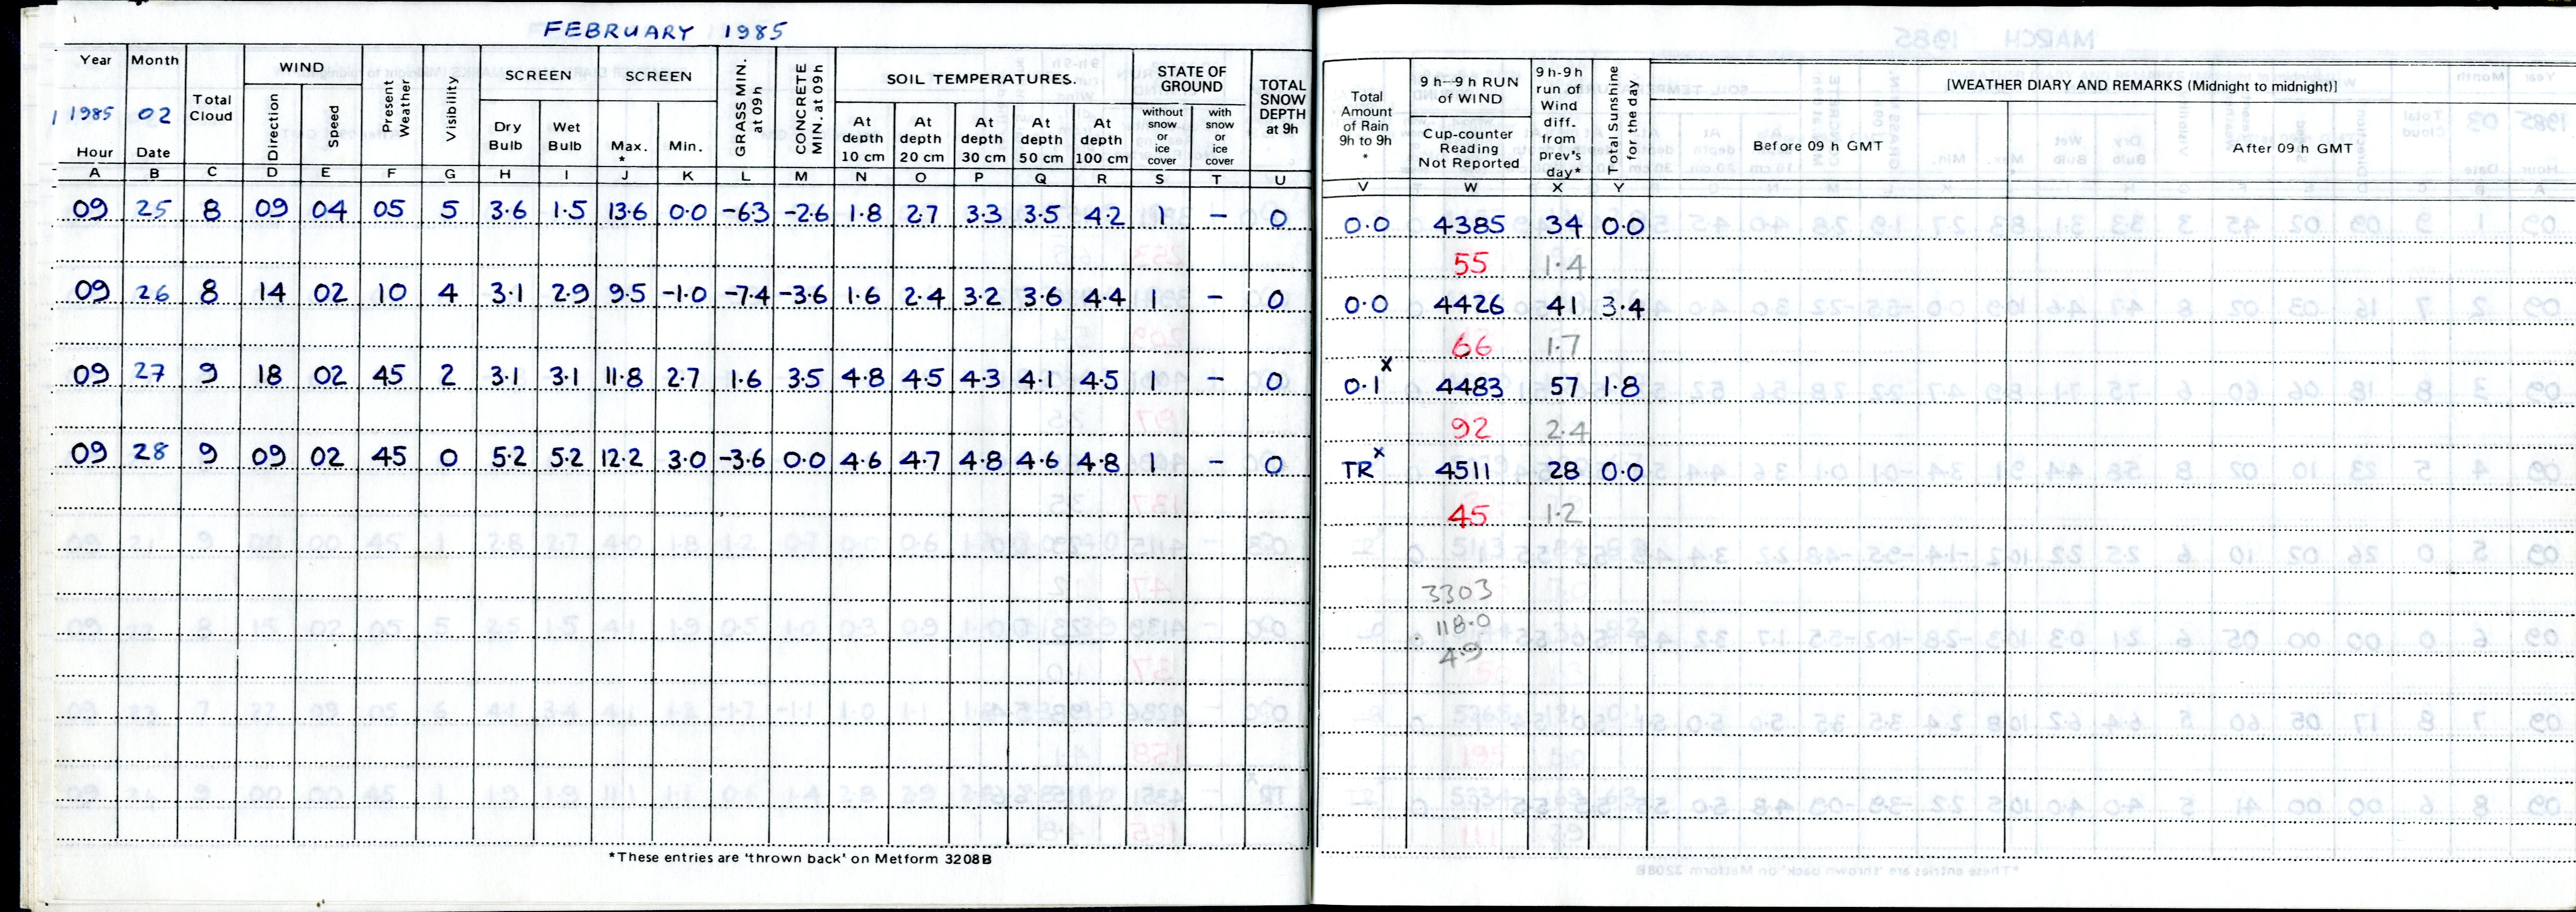 FEBRUARY 1985
Year Month Total Cloud WIND Present Weather Visibility SCREEN SCREEN GRASS MIN. at 09h CONCRETE MIN. at 09h SOIL TEMPERATURES. STATE OF GROUND TOTAL SNOW DEPTH at 9h
1985 02 Direction Speed Dry Bulb Wet Bulb Max. * Min. At depth 10 cm At depth 20 cm At depth 30 cm At depth 50 cm At depth 100 cm without snow or ice cover with snow or ice cover
Hour Date
A B C D E F G H I J K L M N O P Q R S T U
09 25 8 09 04 05 5 3.6 1.5 13.6 0.0 -6.3 -2.6 1.8 2.7 3.3 3.5 4.2 1 - 0
09 26 8 14 02 10 4 3.1 2.9 9.5 -1.0 -7.4 -3.6 1.6 2.4 3.2 3.6 4.4 1 - 0
09 27 9 18 02 45 2 3.1 3.1 11.8 2.7 1.6 3.5 4.8 4.5 4.3 4.1 4.5 1 - 0
09 28 9 09 02 45 0 5.2 5.2 12.2 3.0 -3.6 0.0 4.6 4.7 4.8 4.6 4.8 1 - 0
*These entries are 'thrown back' on Metform 3208B
Total Amount of Rain 9h to 9h * 9 h—9 h RUN of WIND 9 h-9 h run of Wind diff. from prev's day* Total Sunshine for the day [WEATHER DIARY AND REMARKS (Midnight to midnight)]
Cup-counter Reading Not Reported Before 09 h GMT After 09 h GMT
V W X Y
0.0 4385 34 0.0
55 1.4
0.0 4426 41 3.4
66 1.7
0.1x 4483 57 1.8
92 2.4
TRx 4511 28 0.0
45 1.2
3303
118.0
4.9